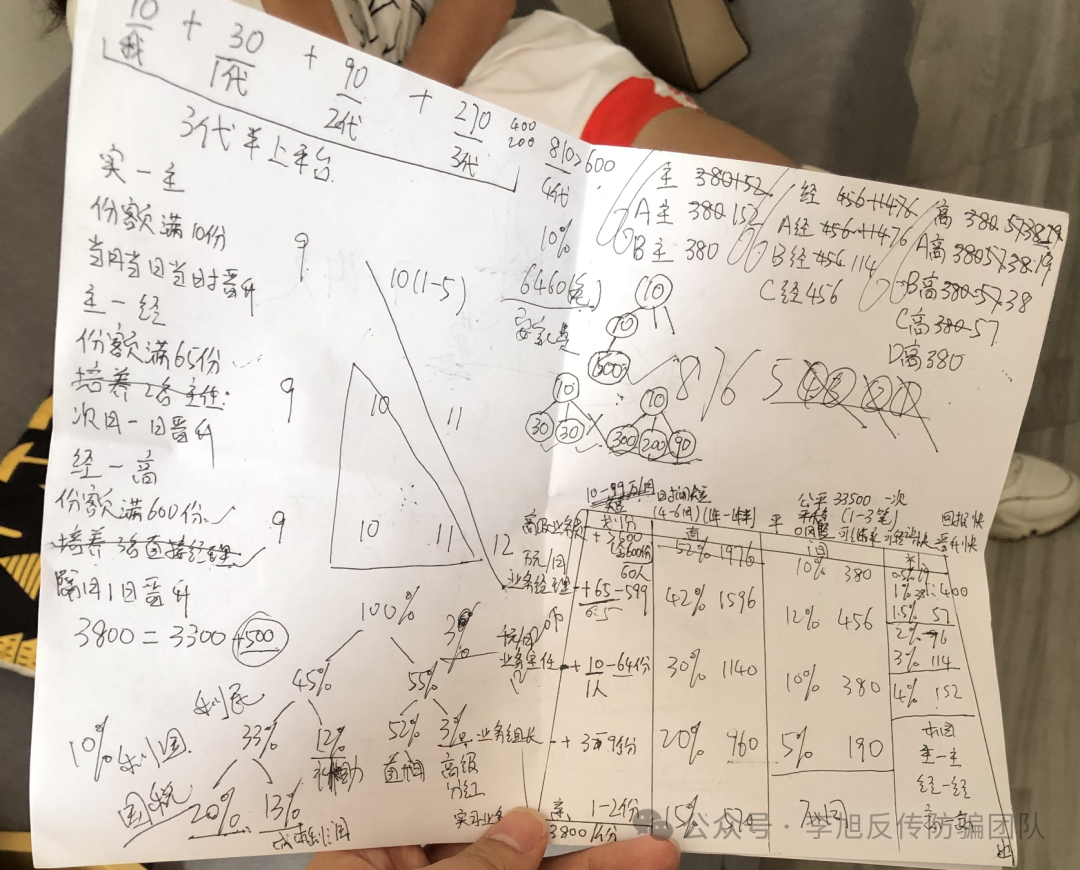 10 + 30 + 90 + 270 810>600
我 1代 2代 3代 4代
400
200
3代羊上平台
10%
6460(元)
安家费
实一主
份额满10份
当月当日当时晋升
主一经
份额满65份
培养2名主任
次日一日晋升
经一高
份额满600份
培养3名直接经理
隔日1日晋升
3800=3300+500
9
9
9
10(1-5)
10
11
10
11
12
主 380 152
A主 380 152
B主 380
经 456 114 76
A经 456 114 76
B经 456 114
C经 456
高 380 57 38 19
A高 380 57 38 19
B高 380 57 38
C高 380 57
D高 380
10
10
600
10
30 30
10
300 200 90
8 7 6 5 4 3 2 1
100%
45% 55%
33% 12% 52% 3%
补助 高级
分红
20% 13%
利民
10% 利国
国税
10-99万/月
(4-6月)
公平 33500 一次
(1-3笔)
0风险
回报快
晋升快
高级业务员
+ >600
60人
52% 1976
10% 380
万元/月
业务经理 + 65-599
42% 1596
12% 456
千元/月
业务主任 + 10-64份
1人
30% 1140
10% 380
业务组长 + 3-9份
20% 760
5% 190
1-2份
15% 570
3800/份
0.5% 19
1% 38
1.5% 57
2% 76
3% 114
4% 152
主一主
经一经
高一高
公众号·李旭反传防骗团队